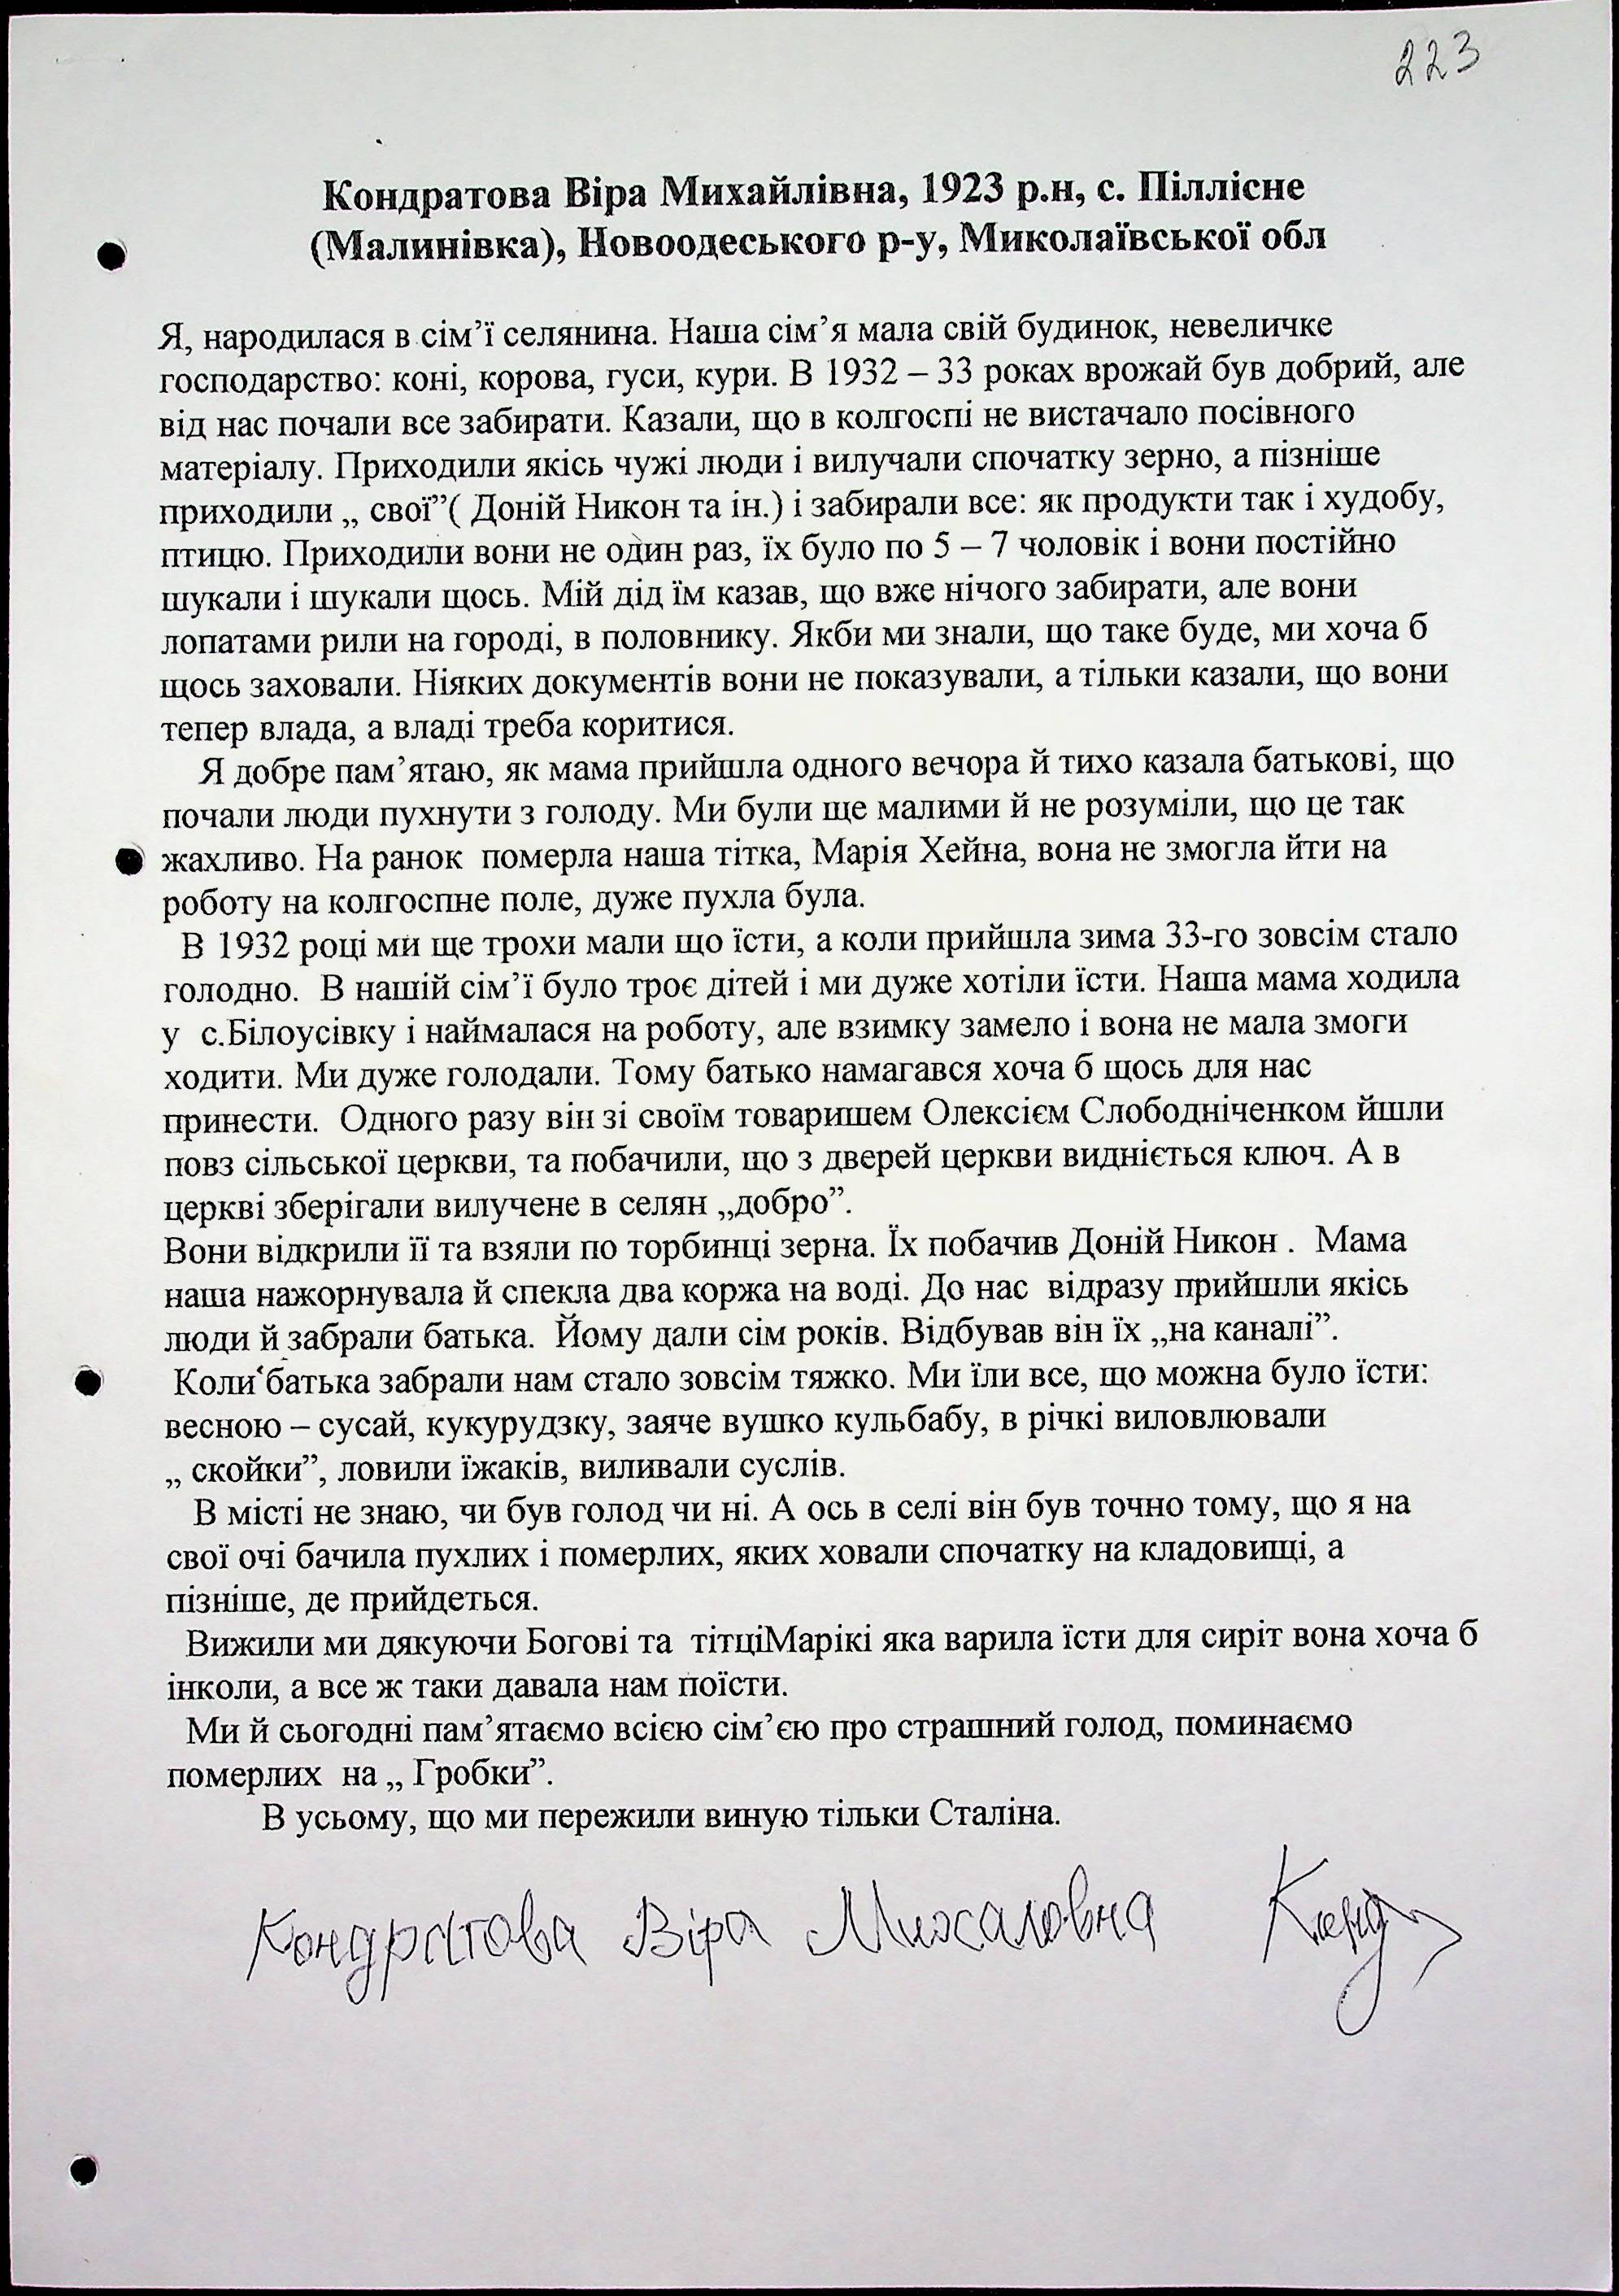 223
Кондратова Віра Михайлівна, 1923 р.н, с. Піллісне
(Малинівка), Новоодеського р-у, Миколаївської обл
Я, народилася в сім’ї селянина. Наша сім’я мала свій будинок, невеличке
господарство: коні, корова, гуси, кури. В 1932 – 33 роках врожай був добрий, але
від нас почали все забирати. Казали, що в колгоспі не вистачало посівного
матеріалу. Приходили якісь чужі люди і вилучали спочатку зерно, а пізніше
приходили „ свої”( Доній Никон та ін.) і забирали все: як продукти так і худобу,
птицю. Приходили вони не один раз, їх було по 5 – 7 чоловік і вони постійно
шукали і шукали щось. Мій дід їм казав, що вже нічого забирати, але вони
лопатами рили на городі, в половнику. Якби ми знали, що таке буде, ми хоча б
щось заховали. Ніяких документів вони не показували, а тільки казали, що вони
тепер влада, а владі треба коритися.
Я добре пам’ятаю, як мама прийшла одного вечора й тихо казала батькові, що
почали люди пухнути з голоду. Ми були ще малими й не розуміли, що це так
жахливо. На ранок  померла наша тітка, Марія Хейна, вона не змогла йти на
роботу на колгоспне поле, дуже пухла була.
В 1932 році ми ще трохи мали що їсти, а коли прийшла зима 33-го зовсім стало
голодно.  В нашій сім’ї було троє дітей і ми дуже хотіли їсти. Наша мама ходила
у  с.Білоусівку і наймалася на роботу, але взимку замело і вона не мала змоги
ходити. Ми дуже голодали. Тому батько намагався хоча б щось для нас
принести.  Одного разу він зі своїм товаришем Олексієм Слободніченком йшли
повз сільської церкви, та побачили, що з дверей церкви видніється ключ. А в
церкві зберігали вилучене в селян „добро”.
Вони відкрили її та взяли по торбинці зерна. Їх побачив Доній Никон .  Мама
наша нажорнувала й спекла два коржа на воді. До нас  відразу прийшли якісь
люди й забрали батька.  Йому дали сім років. Відбував він їх „на каналі”.
Коли батька забрали нам стало зовсім тяжко. Ми їли все, що можна було їсти:
весною – сусай, кукурудзку, заяче вушко кульбабу, в річкі виловлювали
„ скойки”, ловили їжаків, виливали суслів.
В місті не знаю, чи був голод чи ні. А ось в селі він був точно тому, що я на
свої очі бачила пухлих і померлих, яких ховали спочатку на кладовищі, а
пізніше, де прийдеться.
Вижили ми дякуючи Богові та  тітціМарікі яка варила їсти для сиріт вона хоча б
інколи, а все ж таки давала нам поїсти.
Ми й сьогодні пам’ятаємо всією сім’єю про страшний голод, поминаємо
померлих  на „ Гробки”.
В усьому, що ми пережили виную тільки Сталіна.
Кондратова Віра Михаловна Конд